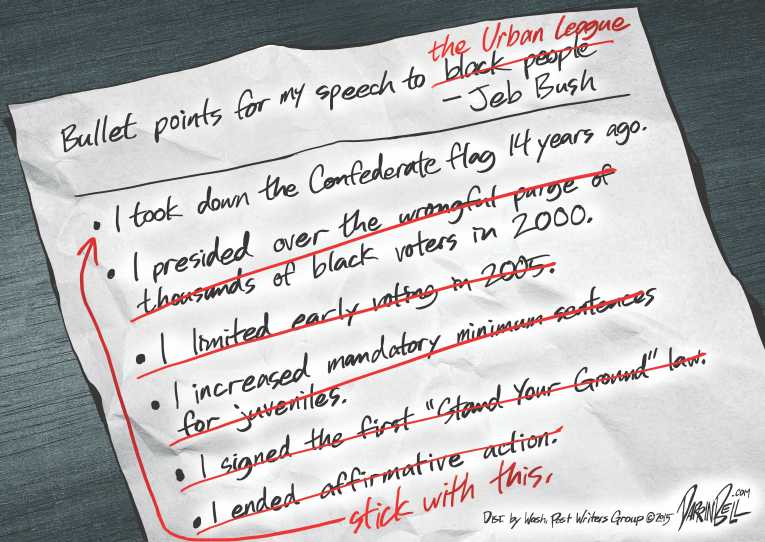 the Urban League
Bullet points for my speech to black people
– Jeb Bush
• I took down the Confederate flag 14 years ago.
• I presided over the wrongful purge of
thousands of black voters in 2000.
• I limited early voting in 2005.
• I increased mandatory minimum sentences
for juveniles.
• I signed the first "Stand Your Ground" law.
• I ended affirmative action.
stick with this.
Dist. by Wash. Post Writers Group ©2015 DARRINBELL.COM